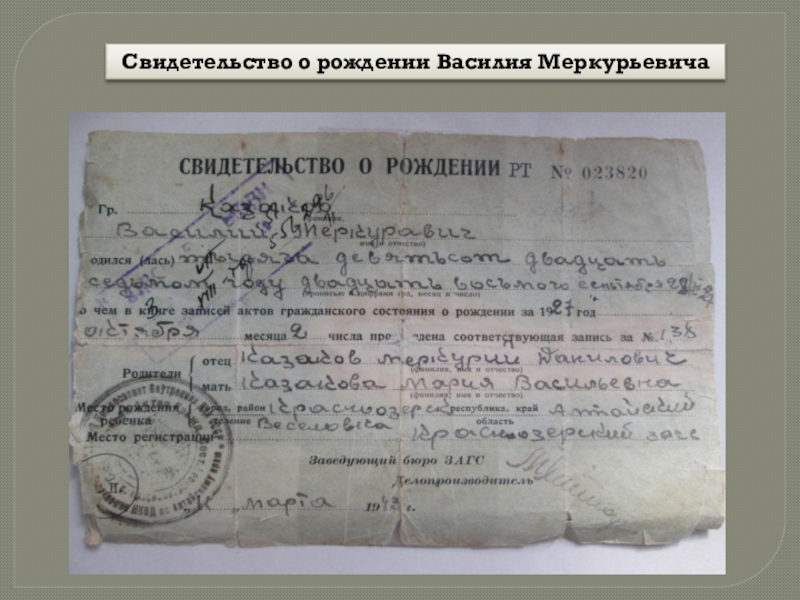 Свидетельство о рождении Василия Меркурьевича
СВИДЕТЕЛЬСТВО О РОЖДЕНИИ РТ № 023820
Гр. Казаков
Василий Меркуравич
(имя и отчество)
одился (лась) тысяча девятьсот двадцать
седьмом году двадцать восьмого сентября
(прописью и цифрами год, месяц и число)
о чем в книге записей актов гражданского состояния о рождении за 1927 год
октября месяца 2 числа про едена соответствующая запись за № 138
Родители
отец Казаков Меркурий Данилович
(фамилия, имя и отчество)
мать Казакова Мария Васильевна
(фамилия, имя и отчество)
Место рождения ребенка
город, район Краснозерск республика, край Алтайский
селение Веселовка область
Место регистрации Краснозерский загс
Заведующий бюро ЗАГС
Делопроизводитель
" марта 1943 г.